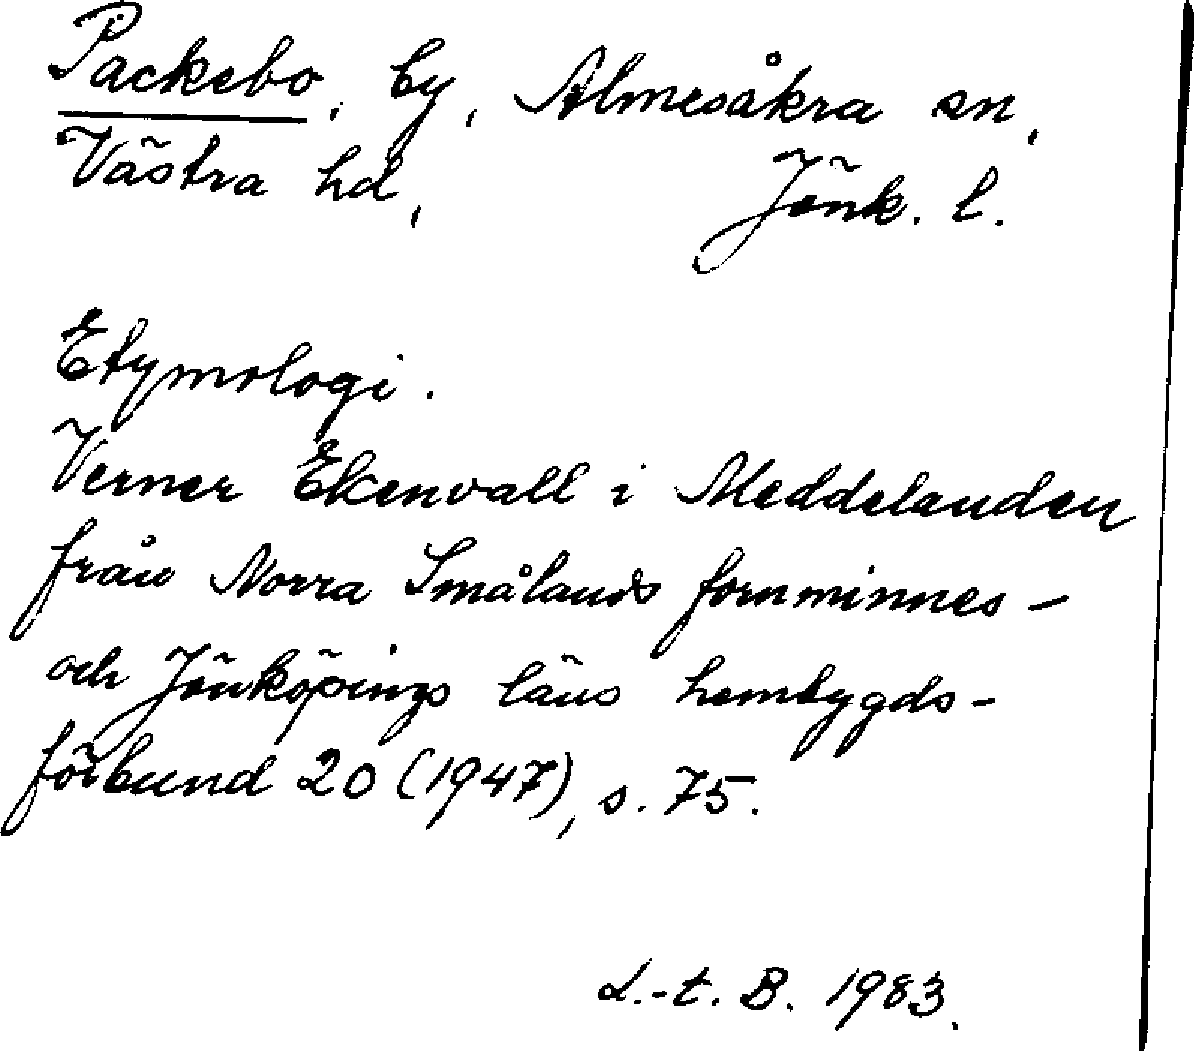 Packebo, by, Almesåkra sn,
Västra hd, Jönk. l.
Etymologi.
Verner Ekenvall i Meddelanden
från Norra Smålands fornminnes-
och Jönköpings läns hembygds-
förbund 20 (1947), s. 75.
L.-t. B. 1983.